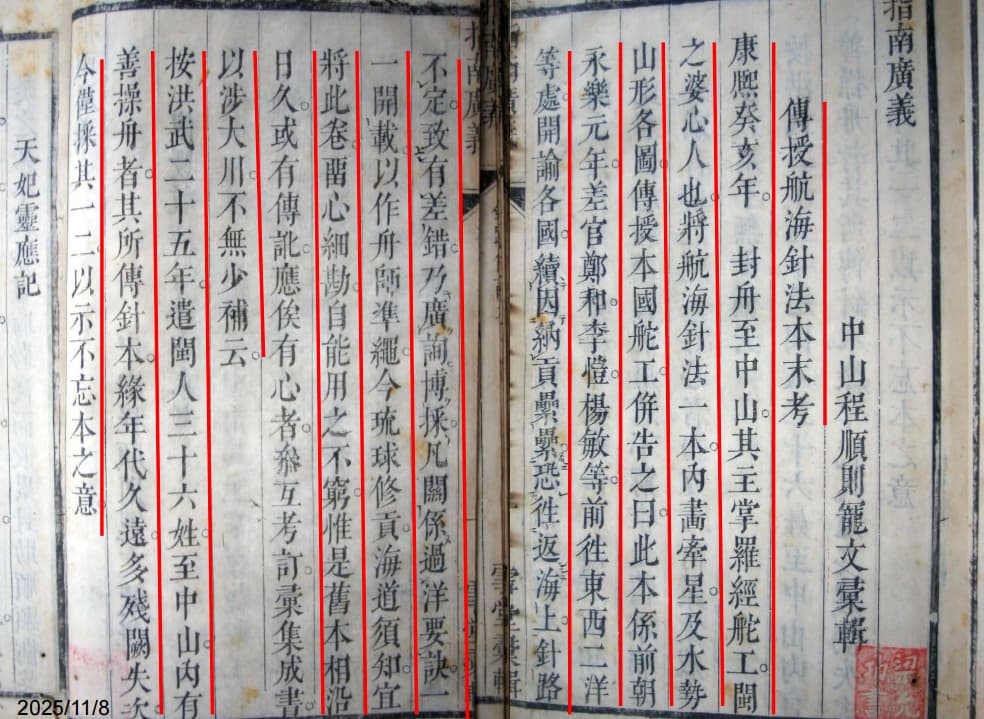 指南廣義
中山程順則寵文彚輯
傳授航海針法本末考
康熙癸亥年封舟至中山其主掌羅經舵工閩
之婆心人也將航海針法一本內畵牽星及水勢
山形各圖傳授本國舵工併告之曰此本係前朝
永樂元年差官鄭和李愷楊敏等前徃東西二洋
等處開諭各國續因納貢纍纍恐徃返海上針路
不定致有差錯乃廣詢博採凡關係過洋要訣一
一開載以作舟師準繩今琉球修貢海道須知宜
將此卷畱心細勘自能用之不窮惟是舊本相沿
日久或有傳訛應俟有心者叅互考訂彚集成書
以涉大川不無少補云
按洪武二十五年遣閩人三十六姓至中山內有
善操舟者其所傳針本緣年代久遠多殘闕失次
今僅採其一二以示不忘本之意
天妃靈應記
2025/11/8